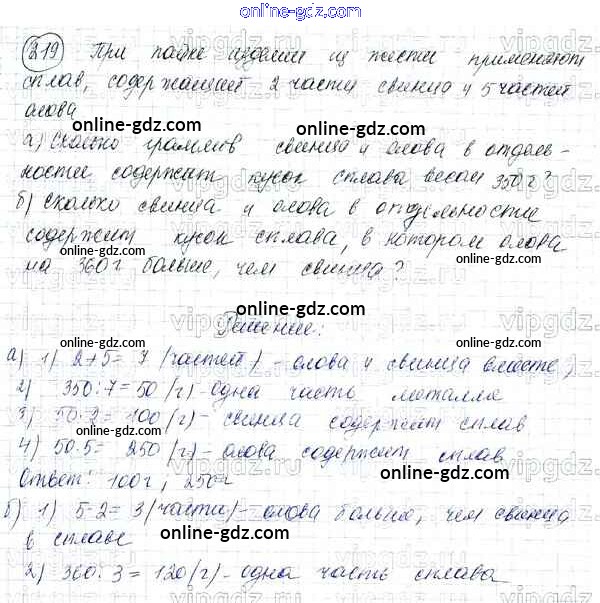 online-gdz.com
219 При пайке изделий из жести применяют
сплав, содержащий 2 части свинца и 5 частей
олова
online-gdz.com
а) Сколько граммов свинца и олова в отдель-
ности содержит кусок сплава весом 350 г?
б) Сколько свинца и олова в отдельности
содержит кусок сплава, в котором олова
на 360 г больше, чем свинца?
online-gdz.com
Решение:
а) 1) 2+5= 7 (частей) - олова и свинца вместе
2) 350:7=50 (г) - одна часть металла
3) 50·2=100 (г) - свинца содержит сплав
online-gdz.com
4) 50·5= 250 (г) - олова содержит сплав
Ответ: 100г, 250г
online-gdz.com
б) 1) 5-2= 3 (части) - олова больше, чем свинца
в сплаве
online-gdz.com
2) 360:3=120 (г) - одна часть сплава
online-gdz.com